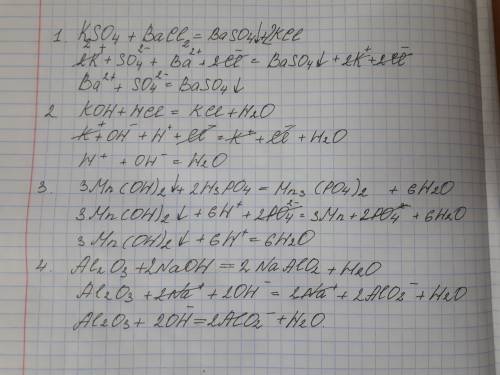 1. K2SO4 + BaCl2 = BaSO4↓+2KCl
2K⁺ + SO4²⁻ + Ba²⁺ + 2Cl⁻ = BaSO4↓ + 2K⁺ + 2Cl⁻
Ba²⁺ + SO4²⁻ = BaSO4↓
2. KOH + HCl = KCl + H2O
K⁺ + OH⁻ + H⁺ + Cl⁻ = K⁺ + Cl⁻ + H2O
H⁺ + OH⁻ = H2O
3. 3Mn(OH)2↓ + 2H3PO4 = Mn3(PO4)2 + 6H2O
3Mn(OH)2↓ + 6H⁺ + 2PO4²⁻ = 3Mn + 2PO4²⁻ + 6H2O
3Mn(OH)2↓ + 6H⁺ = 6H2O
4. Al2O3 + 2NaOH = 2NaAlO2 + H2O
Al2O3 + 2Na⁺ + 2OH⁻ = 2Na⁺ + 2AlO2⁻ + H2O
Al2O3 + 2OH⁻ = 2AlO2⁻ + H2O.